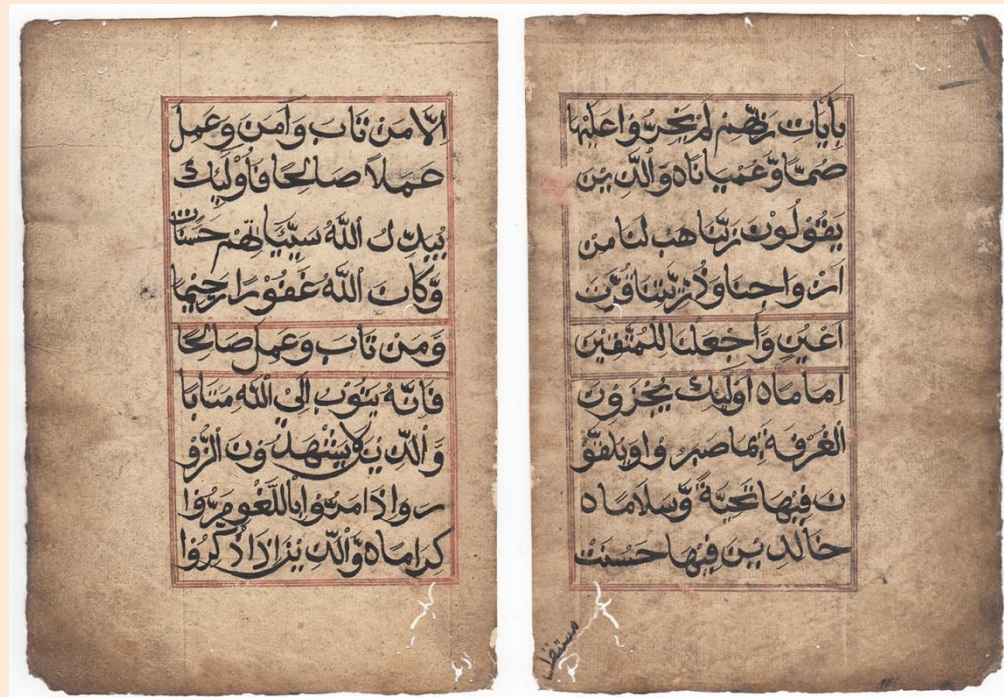 اِلَّا مَنْ تَابَ وَاٰمَنَ وَعَمِلَ
عَمَلاً صَالِحًا فَاُوْلٰئِكَ
يُبَدِّلُ اللّٰهُ سَيِّئَاتِهِمْ حَسَنَات
وَّكَانَ اللّٰهُ غَفُوْرًا رَحِيْمًا
وَمَنْ تَابَ وَعَمِلَ صَالِحًا
فَاِنَّهُ يَتُوْبُ اِلَى اللّٰهِ مَتَابًا
وَالَّذِيْنَ لاَ يَشْهَدُوْنَ الزُّوْ
رَ وَاِذَا مَرُّوْا بِاللَّغْوِ مَرُّوْا
كِرَامًا ه وَّالَّذِيْنَ اِذَا ذُكِّرُوْا
بِاٰيَاتِ رَبِّهِمْ لَمْ يَخِرُّوْا عَلَيْهَا
صُمًّا وَّعُمْيَانًا ه وَالَّذِيْنَ
يَقُوْلُوْنَ رَبَّنَا هَبْ لَنَا مِنْ
اَزْوَاجِنَا وَذُرِّيَّتِنَا قُرَّتَ
اَعْيُنٍ وَّاجْعَلْنَا لِلْمُتَّقِيْنَ
اِمَامًا ه اُوْلٰئِكَ يُجْزَوْنَ
الْغُرْفَةَ بِمَا صَبَرُوْا وَيُلَقَّوْ
نَ فِيْهَا تَحِيَّةً وَّسَلَامًا ه
خَالِدِيْنَ فِيْهَا حَسُنَتْ
مستقرا